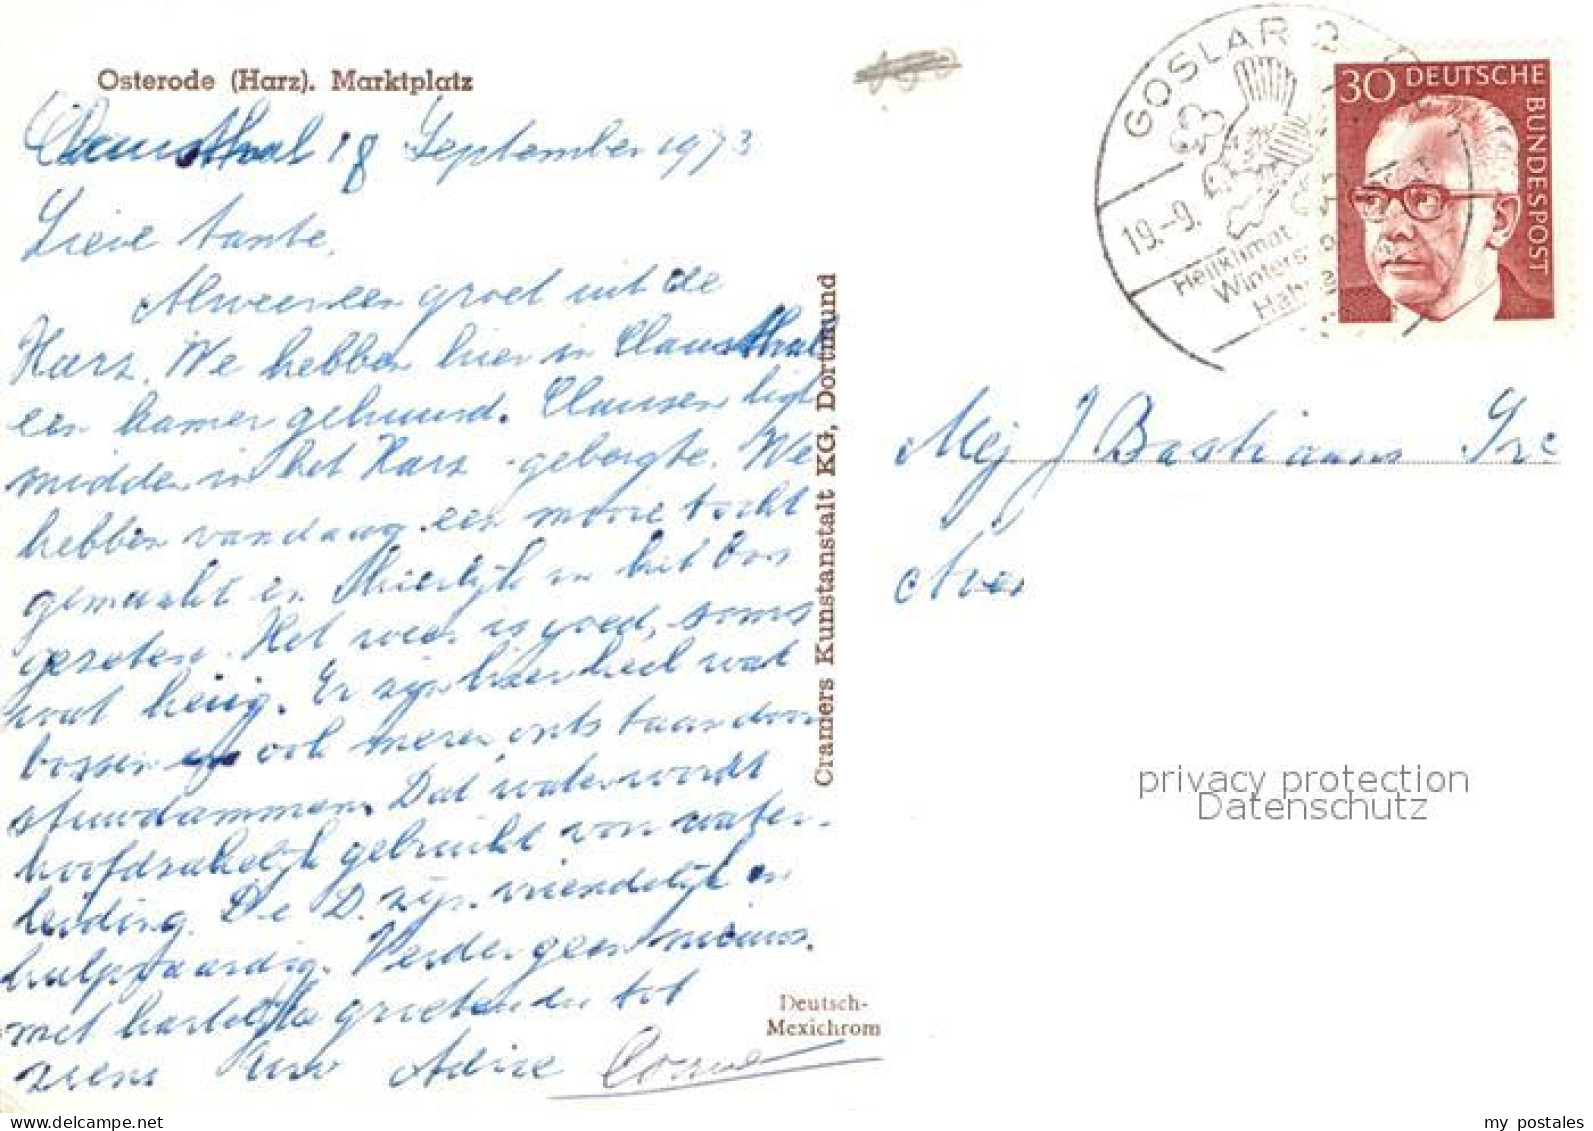 Osterode (Harz). Marktplatz
Clausthal 18 September 1973
Lieve tante.
Alweer een groet uit de
Harz. We hebben hier in Clausthal
een kamer gehuurd. Clausen ligt
midden in het Harz gebergte. We
hebben vandaag een mooie tocht
gemaakt en heerlijk in het bos
gezeten. Het weer is goed, soms
wat heiig. Er zijn hier heel wat
bossen en ook meren ontstaan door
stuwdammen. Dat water wordt
hoofdzakelijk gebruikt voor water-
leiding. De D. zijn vriendelijk en
hulpvaardig. Verder geen nieuws.
met hartelijke groeten en tot
ziens
Cramers Kunstanstalt KG, Dortmund
Deutsch-
Mexichrom
GOSLAR 2
19.-9.
Heilklimat
Winters
Hah
30 DEUTSCHE
BUNDESPOST
Mej J Bastiaans
privacy protection
Datenschutz
my postales